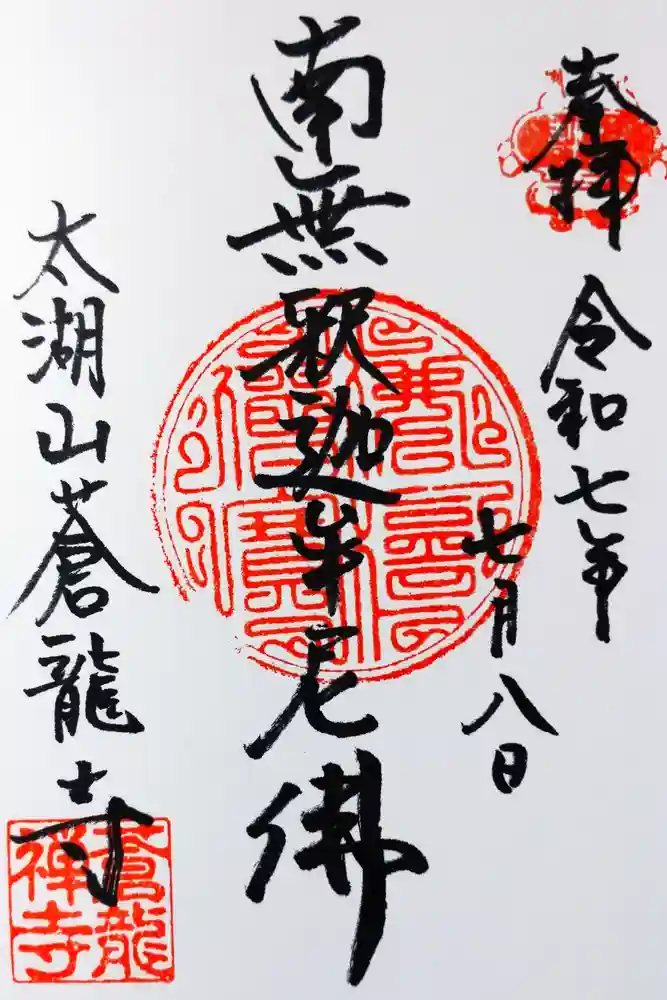 奉拝
令和七年
七月八日
南無釈迦牟尼佛
太湖山蒼龍寺
蒼龍禅寺